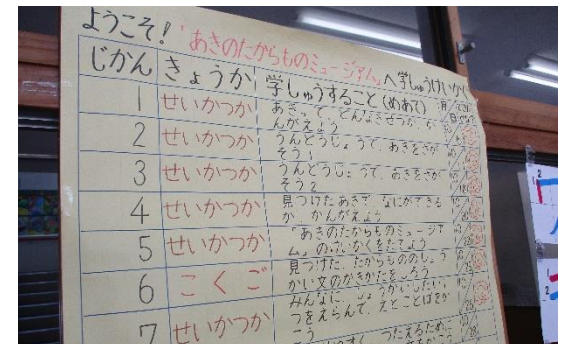 ようこそ!「あきのたからものミュージアム」へ 学しゅうけいかく
じかん きょうか 学しゅうすること(めあて)
1 せいかつか あきって、どんなきせつか、か
んがえよう
2 せいかつか うんどうじょうで、あきをさが
そう1
3 せいかつか うんどうじょうで、あきをさが
そう2
4 せいかつか 見つけたあきで、なにができる
か、かんがえよう
5 せいかつか 「あきのたからものミュージア
ム」のけいかくをたてよう
6 こくご 見つけた、たからもののしょう
かい文のかきかたをしろう
7 せいかつか みんなに、しょうかいしたい
つをえらんで、えとことばをか
こう
つたえるために